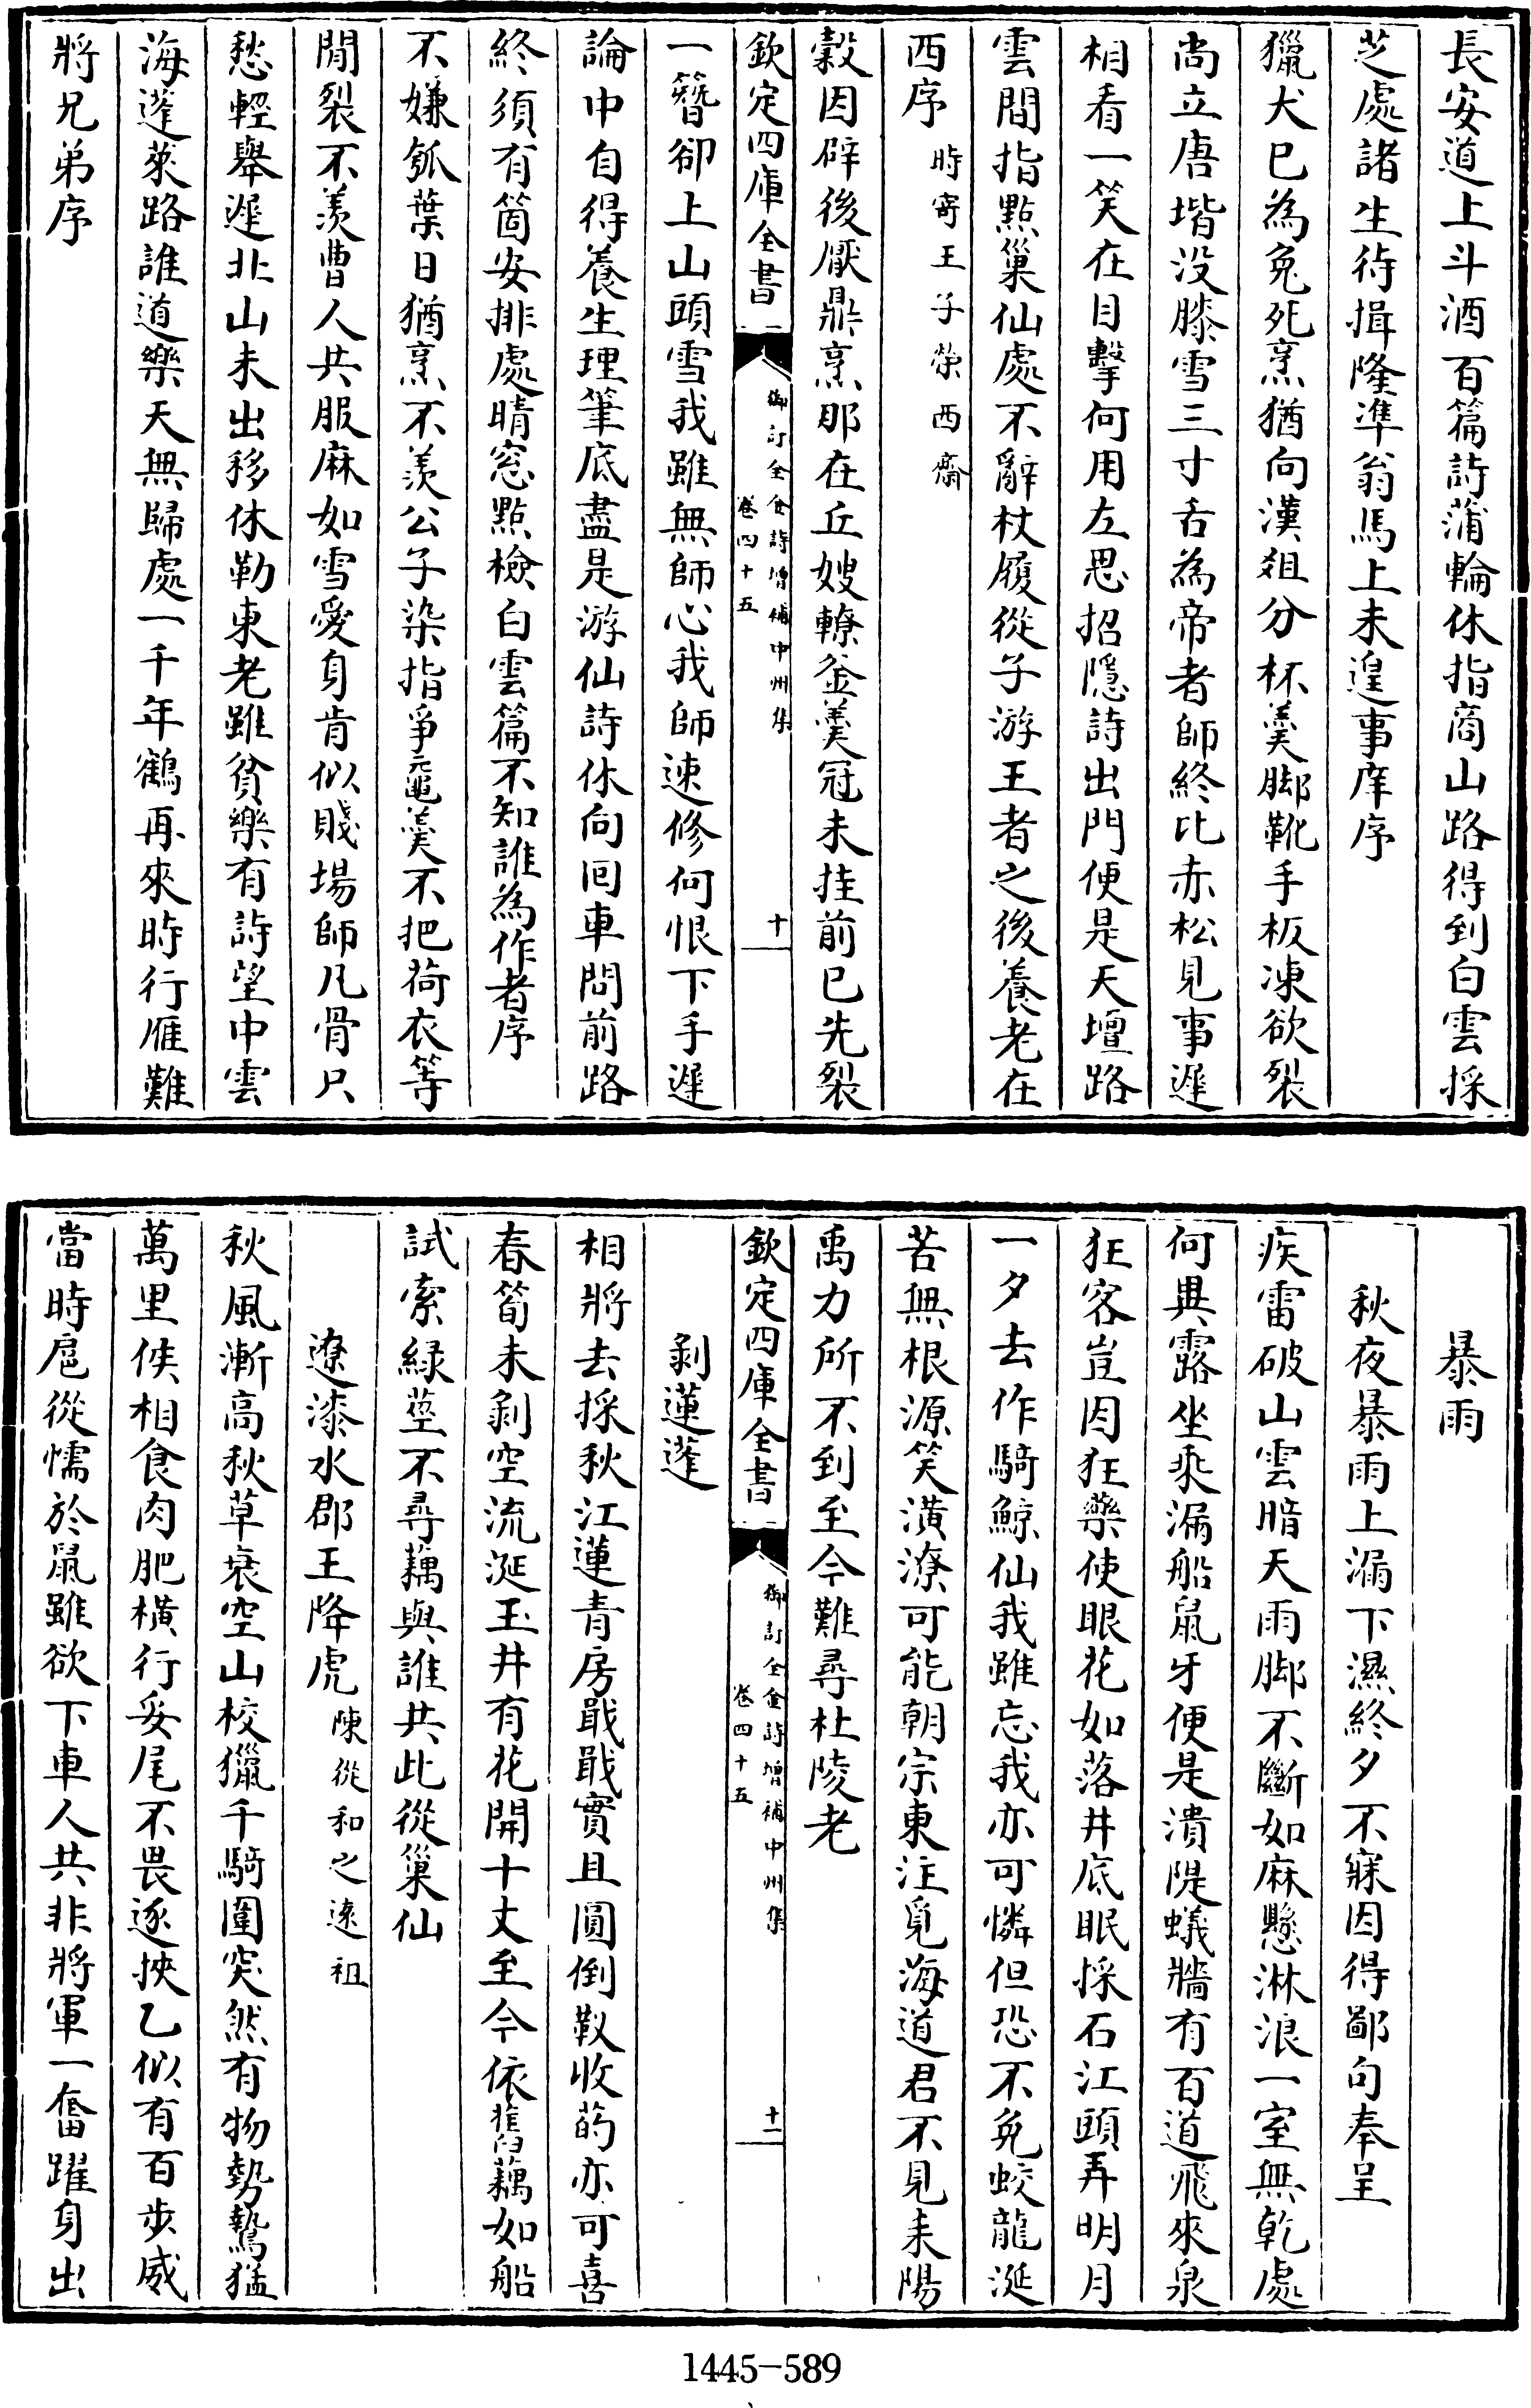 長安道上斗酒百篇詩蒲輪休指商山路得到白雲採
芝處諸生待揖隆準翁馬上未遑事庠序
獵犬已為兔死烹猶向漢爼分杯羮脚靴手板凍欲裂
尚立唐堦没膝雪三寸舌為帝者師終比赤松見事遲
相看一笑在目擊何用左思招隱詩出門便是天壇路
雲間指點巢仙處不辭杖履從子游王者之後養老在
西序時寄王子榮西齋
穀因辟後厭鼎烹那在丘嫂轑釜羮冠未挂前已先裂
欽定四庫全書 御訂全金詩增補中州集 卷四十五 十
一簪卻上山頭雪我雖無師心我師速修何恨下手遲
論中自得養生理筆底盡是游仙詩休向囘車問前路
終須有箇安排處晴窓點檢白雲篇不知誰為作者序
不嫌瓠葉日猶烹不羨公子染指爭黿羮不把荷衣等
閒裂不羨曹人共服麻如雪愛身肯似賤場師凡骨只
愁輕舉遲北山未出移休勒東老雖貧樂有詩望中雲
海蓬萊路誰道樂天無歸處一千年鶴再來時行雁難
將兄弟序
暴雨
秋夜暴雨上漏下濕終夕不寐因得鄙句奉呈
疾雷破山雲暗天雨脚不斷如麻懸淋浪一室無乾處
何異露坐乘漏船鼠牙便是潰隄蟻牆有百道飛來泉
狂客豈因狂藥使眼花如落井底眠採石江頭弄明月
一夕去作騎鯨仙我雖忘我亦可憐但恐不免蛟龍涎
苦無根源笑潢潦可能朝宗東注覓海道君不見耒陽
禹力所不到至今難尋杜陵老
欽定四庫全書 御訂全金詩增補中州集 卷四十五 十一
剝蓮蓬
相將去採秋江蓮青房戢戢實且圓倒㪺收菂亦可喜
春筍未剝空流涎玉井有花開十丈至今依舊藕如船
試索綠莖不尋藕與誰共此從巢仙
遼漆水郡王降虎陳從和之遠祖
秋風漸高秋草衰空山校獵千騎圍突然有物勢鷙猛
萬里侯相食肉肥橫行妥尾不畏逐挾乙似有百步威
當時扈從懦於鼠雖欲下車人共非將軍一奮躍身出
1445-589